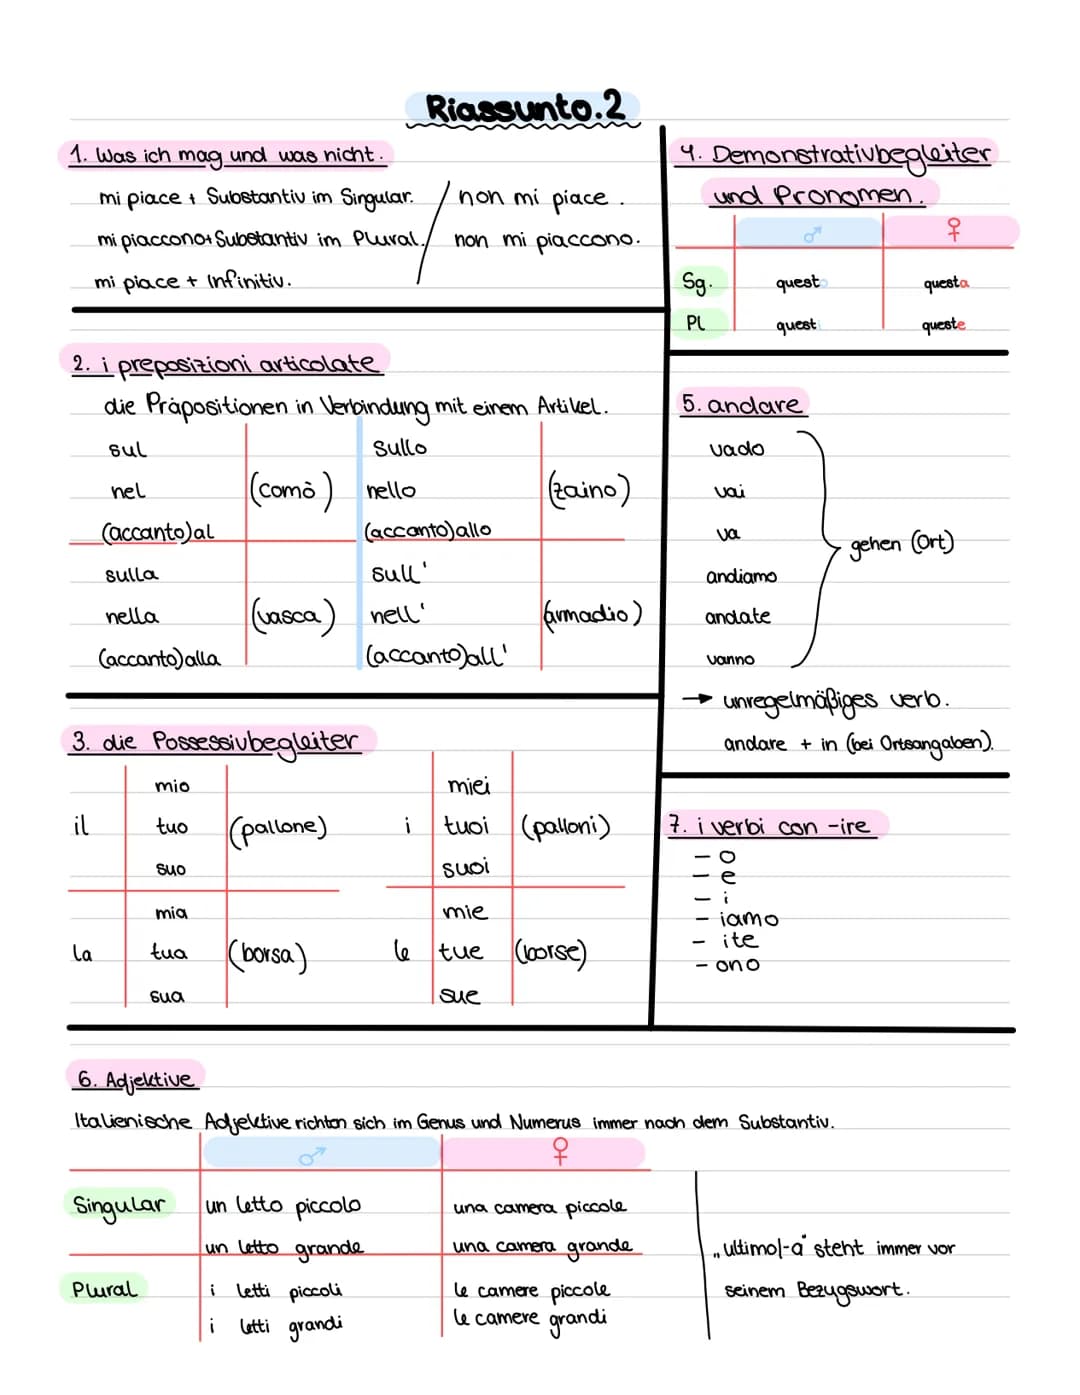 Riassunto.2
1. Was ich mag und was nicht.
mi piace + Substantiv im Singular. / non mi piace.
mi piaccono + Substantiv im Plural. / non mi piaccono.
mi piace + Infinitiv.
2. i preposizioni articolate
die Präpositionen in Verbindung mit einem Artikel.
sul sullo
nel (comò) nello (zaino)
(accanto) al (accanto) allo
sulla sull'
nella (vasca) nell' (armadio)
(accanto) alla (accanto) all'
3. die Possessivbegleiter
mio miei
il tuo (pallone) i tuoi (palloni)
suo suoi
mia mie
la tua (borsa) le tue (borse)
sua sue
4. Demonstrativbegleiter
und Pronomen.
♂ ♀
Sg. questo questa
Pl questi queste
5. andare
vado
vai
va
gehen (Ort)
andiamo
andate
vanno
→ unregelmäßiges verb.
andare + in (bei Ortsangaben).
7. i verbi con -ire
- o
- e
- i
- iamo
- ite
- ono
6. Adjektive
Italienische Adjektive richten sich im Genus und Numerus immer nach dem Substantiv.
♂ ♀
Singular un letto piccolo una camera piccole
un letto grande una camera grande
Plural i letti piccoli le camere piccole
i letti grandi le camere grandi
„ultimo/-a" steht immer vor
seinem Bezugswort.